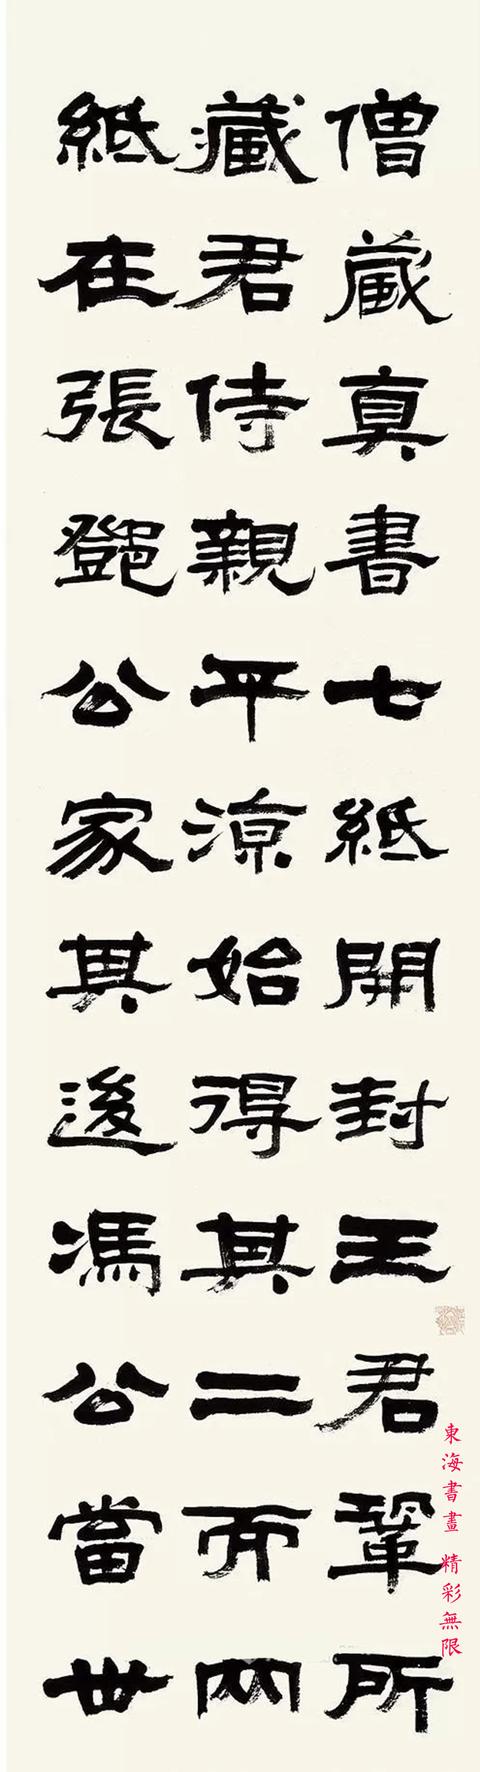 僧藏真書七紙開封王君鞏所
藏君侍親平涼始得其二而兩
紙在張鄧公家其後馮公當世
東海書畫 精彩無限